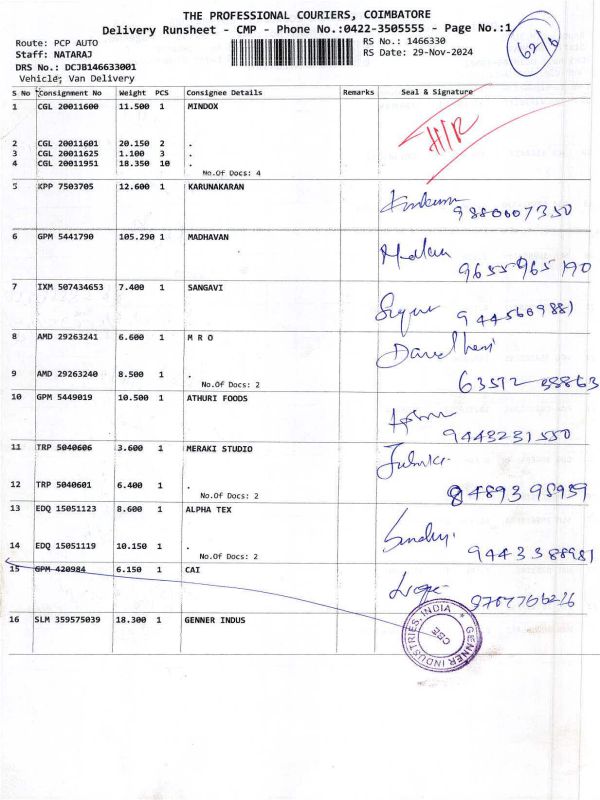 THE PROFESSIONAL COURIERS, COIMBATORE
Delivery Runsheet - CMP - Phone No.:0422-3505555 - Page No.:1
62/6
Route: PCP AUTO
RS No.: 1466330
Staff: NATARAJ
RS Date: 29-Nov-2024
DRS No.: DCJB146633001
Vehicle; Van Delivery
S No Consignment No Weight PCS Consignee Details Remarks Seal & Signature
1 CGL 20011600 11.500 1 MINDOX
H/R
2 CGL 20011601 20.150 2 .
3 CGL 20011625 1.100 3 .
4 CGL 20011951 18.350 10 .
No.Of Docs: 4
5 KPP 7503705 12.600 1 KARUNAKARAN
9880007350
6 GPM 5441790 105.290 1 MADHAVAN
9655965190
7 IXM 507434653 7.400 1 SANGAVI
9445609881
8 AMD 29263241 6.600 1 M R O
9 AMD 29263240 8.500 1 .
No.Of Docs: 2
63512 38863
10 GPM 5449019 10.500 1 ATHURI FOODS
9443231550
11 TRP 5040606 3.600 1 MERAKI STUDIO
12 TRP 5040601 6.400 1 .
No.Of Docs: 2
84893 95939
13 EDQ 15051123 8.600 1 ALPHA TEX
14 EDQ 15051119 10.150 1 .
No.Of Docs: 2
9443388981
15 GPM 420984 6.150 1 CAI
16 SLM 359575039 18.300 1 GENNER INDUS
GENNER INDUSTRIES, INDIA
CBE